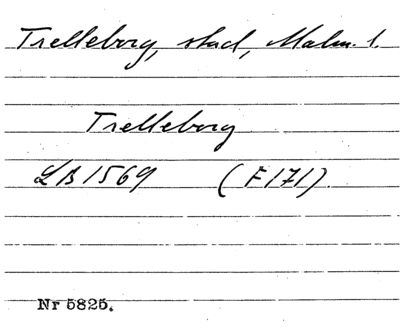 Trelleborg, stad, Malm. l.
Trelleborg
LB 1569 (F 171).
Nr 5825.